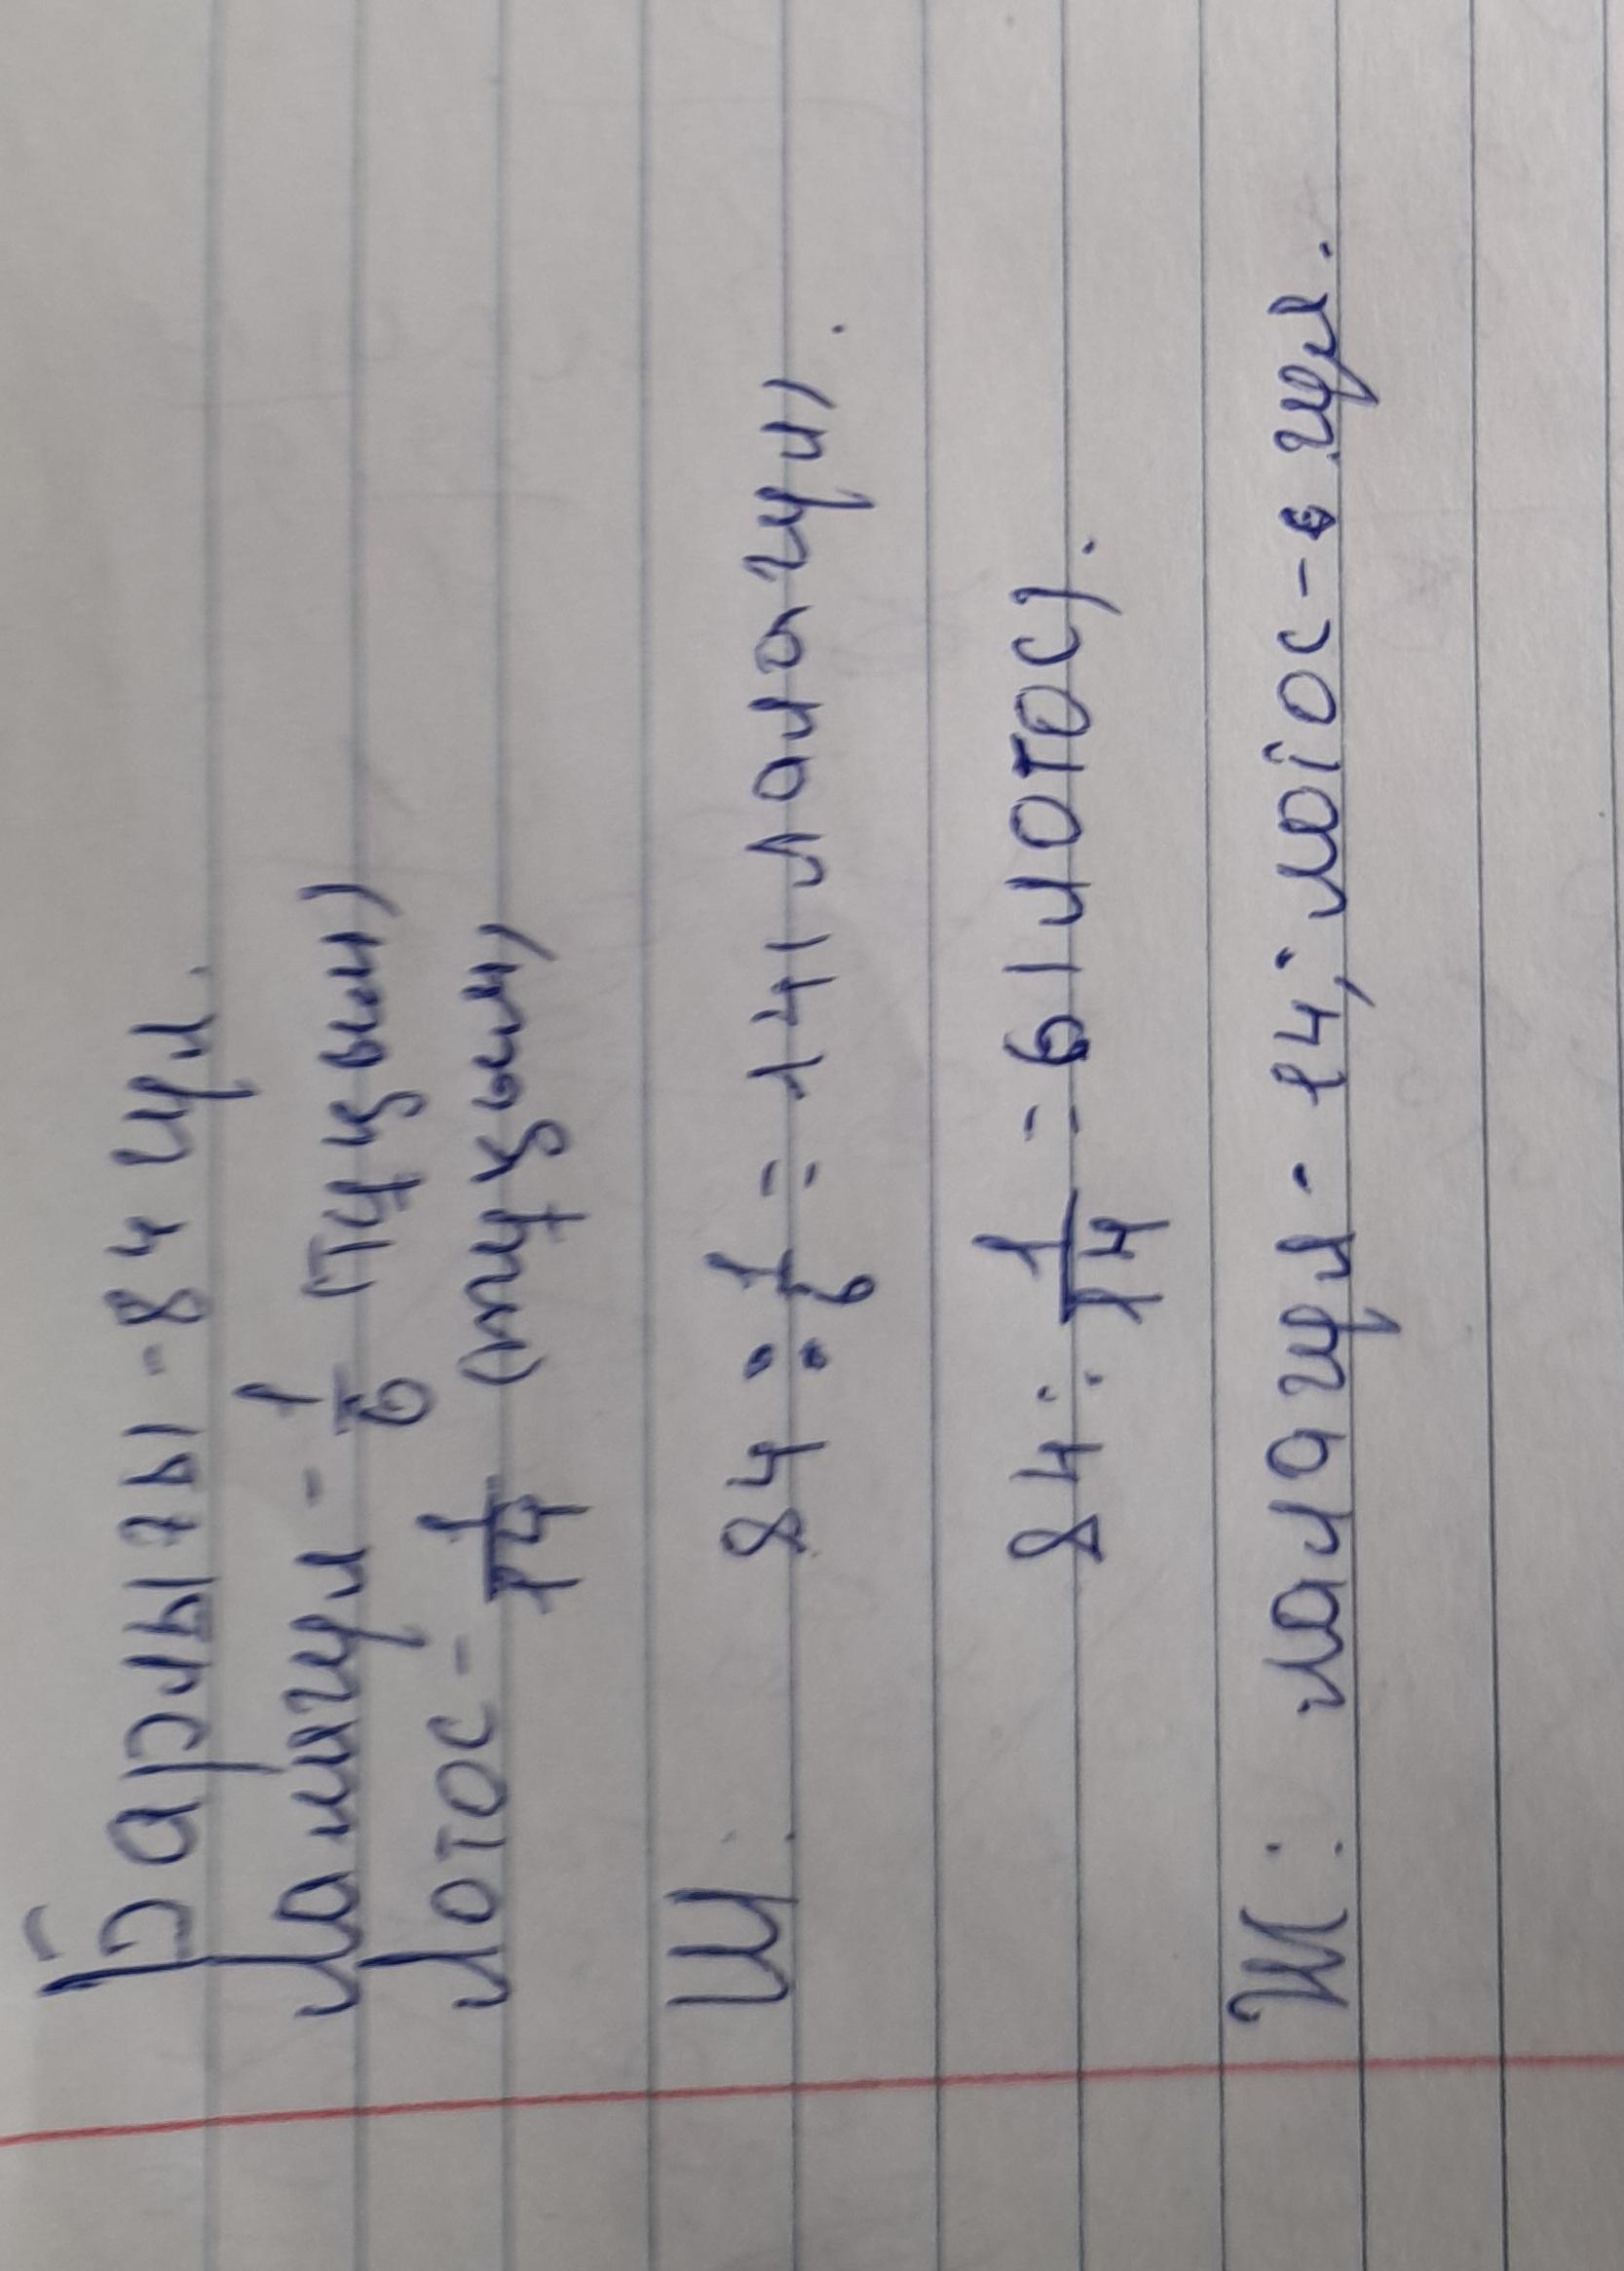 Барлығы - 84 гүл.
Лалагүл - 1/6 (гүлзем)
Лотос - 1/14 (гүлзем)
Ш
84 : 1/6 = 14 (лалагүл).
84 : 1/14 = 6 (лотос).
Ж: лалагүл - 14; лотос - 6 гүл.